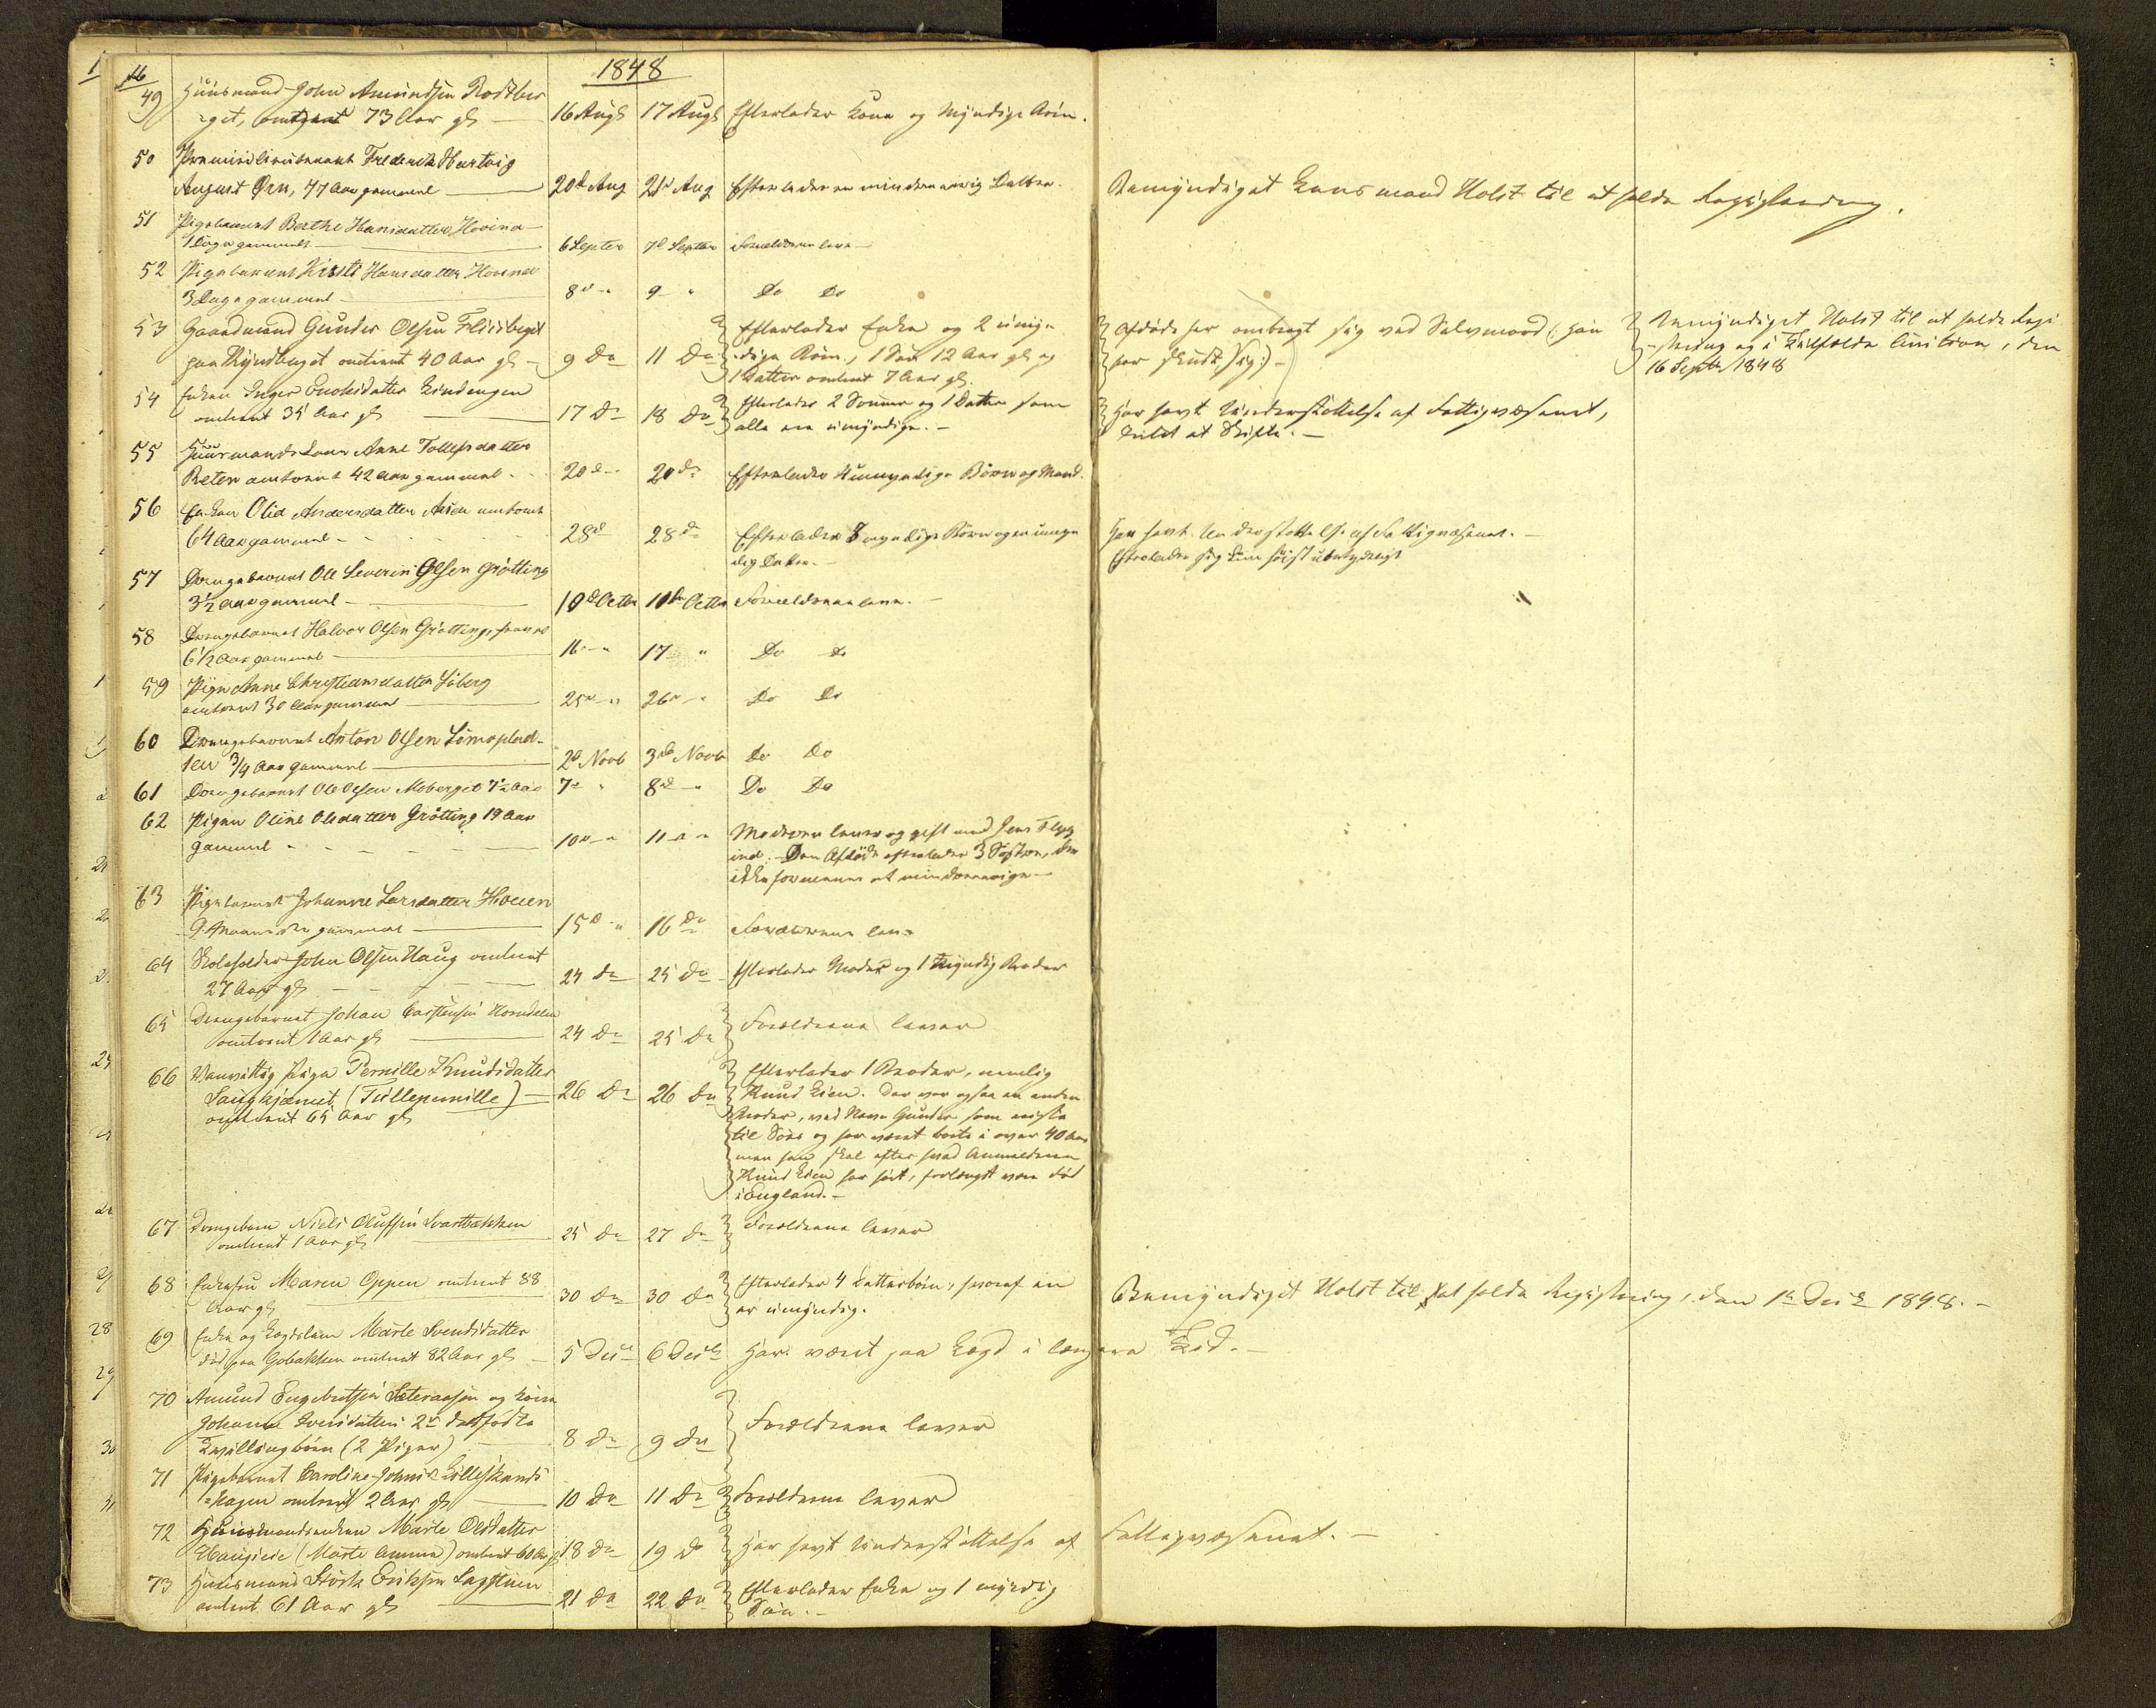 16
1848
49 Huusmand John Amundsen Rodtber
get, omtrent 73 Aar gl 16 Augs 17 Augs Efterlader Kone og myndige Børn.
50 Premierlieutenant Frederik Hartvig
August Ørn, 47 Aar gammel 20d Aug 21d Aug Efterlader en mindreaarig Datter. Bemyndiget Lensmand Holst til at holde Registrering.
51 Pigebarnet Berthe Hansdatter Hovind
1 Dag gammel 6 Septer 7d Septbr Forældrene leve
52 Pigebarnet Kirsti Hansdatter Hovind
3 Dage gammel 8d " 9 " Do Do
53 Gaardmand Gunder Olsen
paa omtrent 40 Aar gl 9 Do 11 Do
Efterlader Enke og 2 umyn
dige Børn, 1 Søn 12 Aar gl og
1 Datter omtrent 7 Aar gl.
Afdøde har ombragt sig ved Selvmord (: han
har skudt sig :)
Bemyndiget Holst til at holde Regi
strering og i Tilfælde Auction, den
16 Septbr 1848
54 Enken Inger Enoksdatter Lindengen
omtrent 35 Aar gl 17 Do 18 Do
Efterlader 2 Sønner og 1 Datter som
alle ere umyndige.
Har havt Understøttelse af Fattigvæsenet,
Intet at Skifte.
55 Huusmands Kone Anne Tollefsdatter
omtrent 42 Aar gammel 20d 20d Efterlader 4 umyndige Børn og Mand.
56 Enken Olia Andersdatter omtrent
64 Aar gammel 28d 28d Efterlader 8 myndige Børn og en umyn
dig Datter.
Har havt Understøttelse af Fattigvæsenet.
Efterlader sig kun høist ubetydeligt
57 Drengebarnet Ole Severin Olsen Grøtting
3½ Aar gammel 10d Octbr 10d Octbr Forældrene leve.
58 Drengebarnet Halvor Olsen Grøtting,
6½ Aar gammel 16 " 17 " Do Do
59 Pigen Anne Christiansdatter Løberg
omtrent 30 Aar gammel 25d " 26d " Do Do
60 Drengebarnet Anton Olsen
¾ Aar gammel 2d Novb 3d Novb Do Do
61 Drengebarnet Ole Olsen Moberget 7½ Aar 7d " 8d " Do Do
62 Pigen Oline Olsdatter Grøtting 19 Aar
gammel 10d " 11d "
Moderen lever og gift med Jens
Den Afdøde efterlader 3 Søstre, der
ikke formenes at mindreaarige
63 Pigebarnet Johanne Larsdatter Hoven
9 Maaneder gammel 15d " 16d Forældrene leve
64 Skoleholder John Olsen Haug omtrent
27 Aar gl 24 Do 25 Do Efterlader Moder og 1 Myndig Broder
65 Drengebarnet Johan Carstensen Horndalen
omtrent 1 Aar gl 24 Do 25 Do Forældrene lever
66 Vanvittig Pige Pernille Knudsdatter
(Tullepernille)
omtrent 65 Aar gl 26 Do 26 Do
Efterlader 1 Broder, nemlig
Knud Lien. Der var ogsaa en anden
Broder, ved Navn Gunder som reiste
til Søes og har været borte i over 40 Aar
men han skal efter hvad Anmelderen
Knud Lien har hørt, forlængst være død
i England.
67 Drengebarn Niels Olufsen Svartbækken
omtrent 1 Aar gl 25 Do 27 Do Forældrene lever
68 Enkefru Maren Oppen omtrent 88
Aar gl 30 Do 30 Do
Efterlader 4 Datterbørn, hvoraf en
er umyndig.
Bemyndiget Holst til at holde Registrering, den 1st Decbr 1848.
69 Enke og Lægdslem Marte Svendsdatter
død paa Gobakken omtrent 82 Aar gl 5 Decbr 6 Decbr Har været paa Lægd i længere Tid.
70 Amund Engebretsen Sæteraasen og Kone
Johanne Iversdatters 2de dødfødte
Tvillingbørn (2 Piger) 8 Do 9 Do Forældrene lever
71 Pigebarnet Caroline Johnsd.
hagen omtrent 2 Aar gl 10 Do 11 Do Forældrene lever
72 Huusmandsenken Marte Olsdatter
(Marte Amma) omtrent 60 Aar gl 18 Do 19 Do Har havt Understøttelse af Fattigvæsenet.
73 Huusmand Størk Eriksen
omtrent 61 Aar gl 21 Do 22 Do
Efterlader Enke og 1 myndig
Søn.